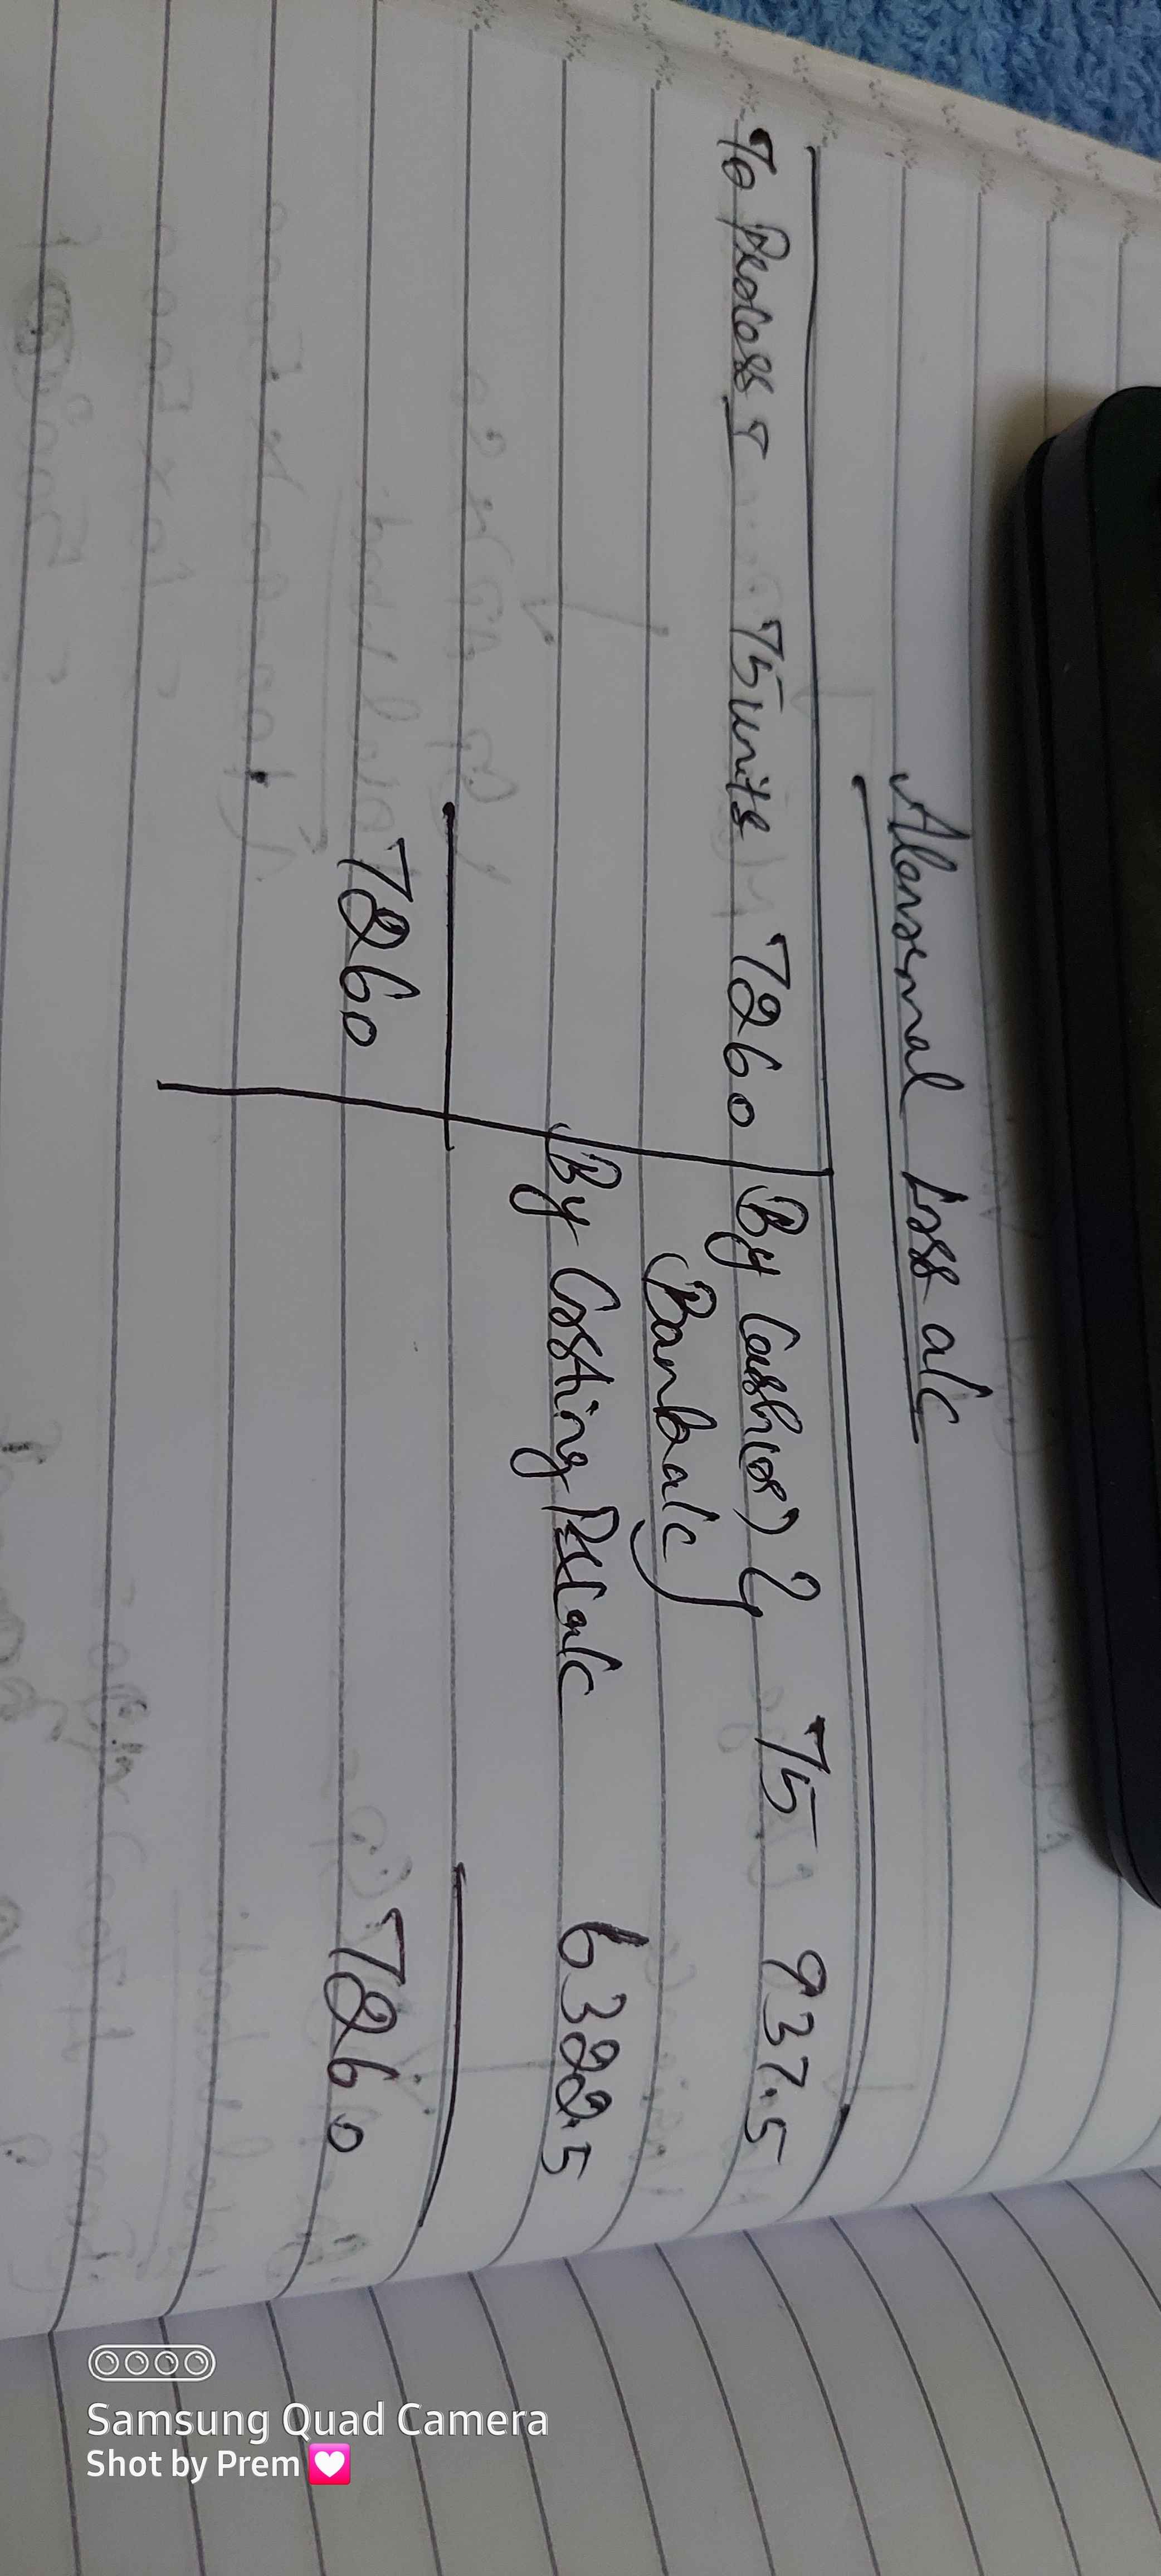 Abnormal Loss a/c
To Process I 75 units 7260 By Cash (or) 75 937.5
Bank a/c
By Costing P&L a/c 6322.5
7260 7260
Samsung Quad Camera
Shot by Prem 💟